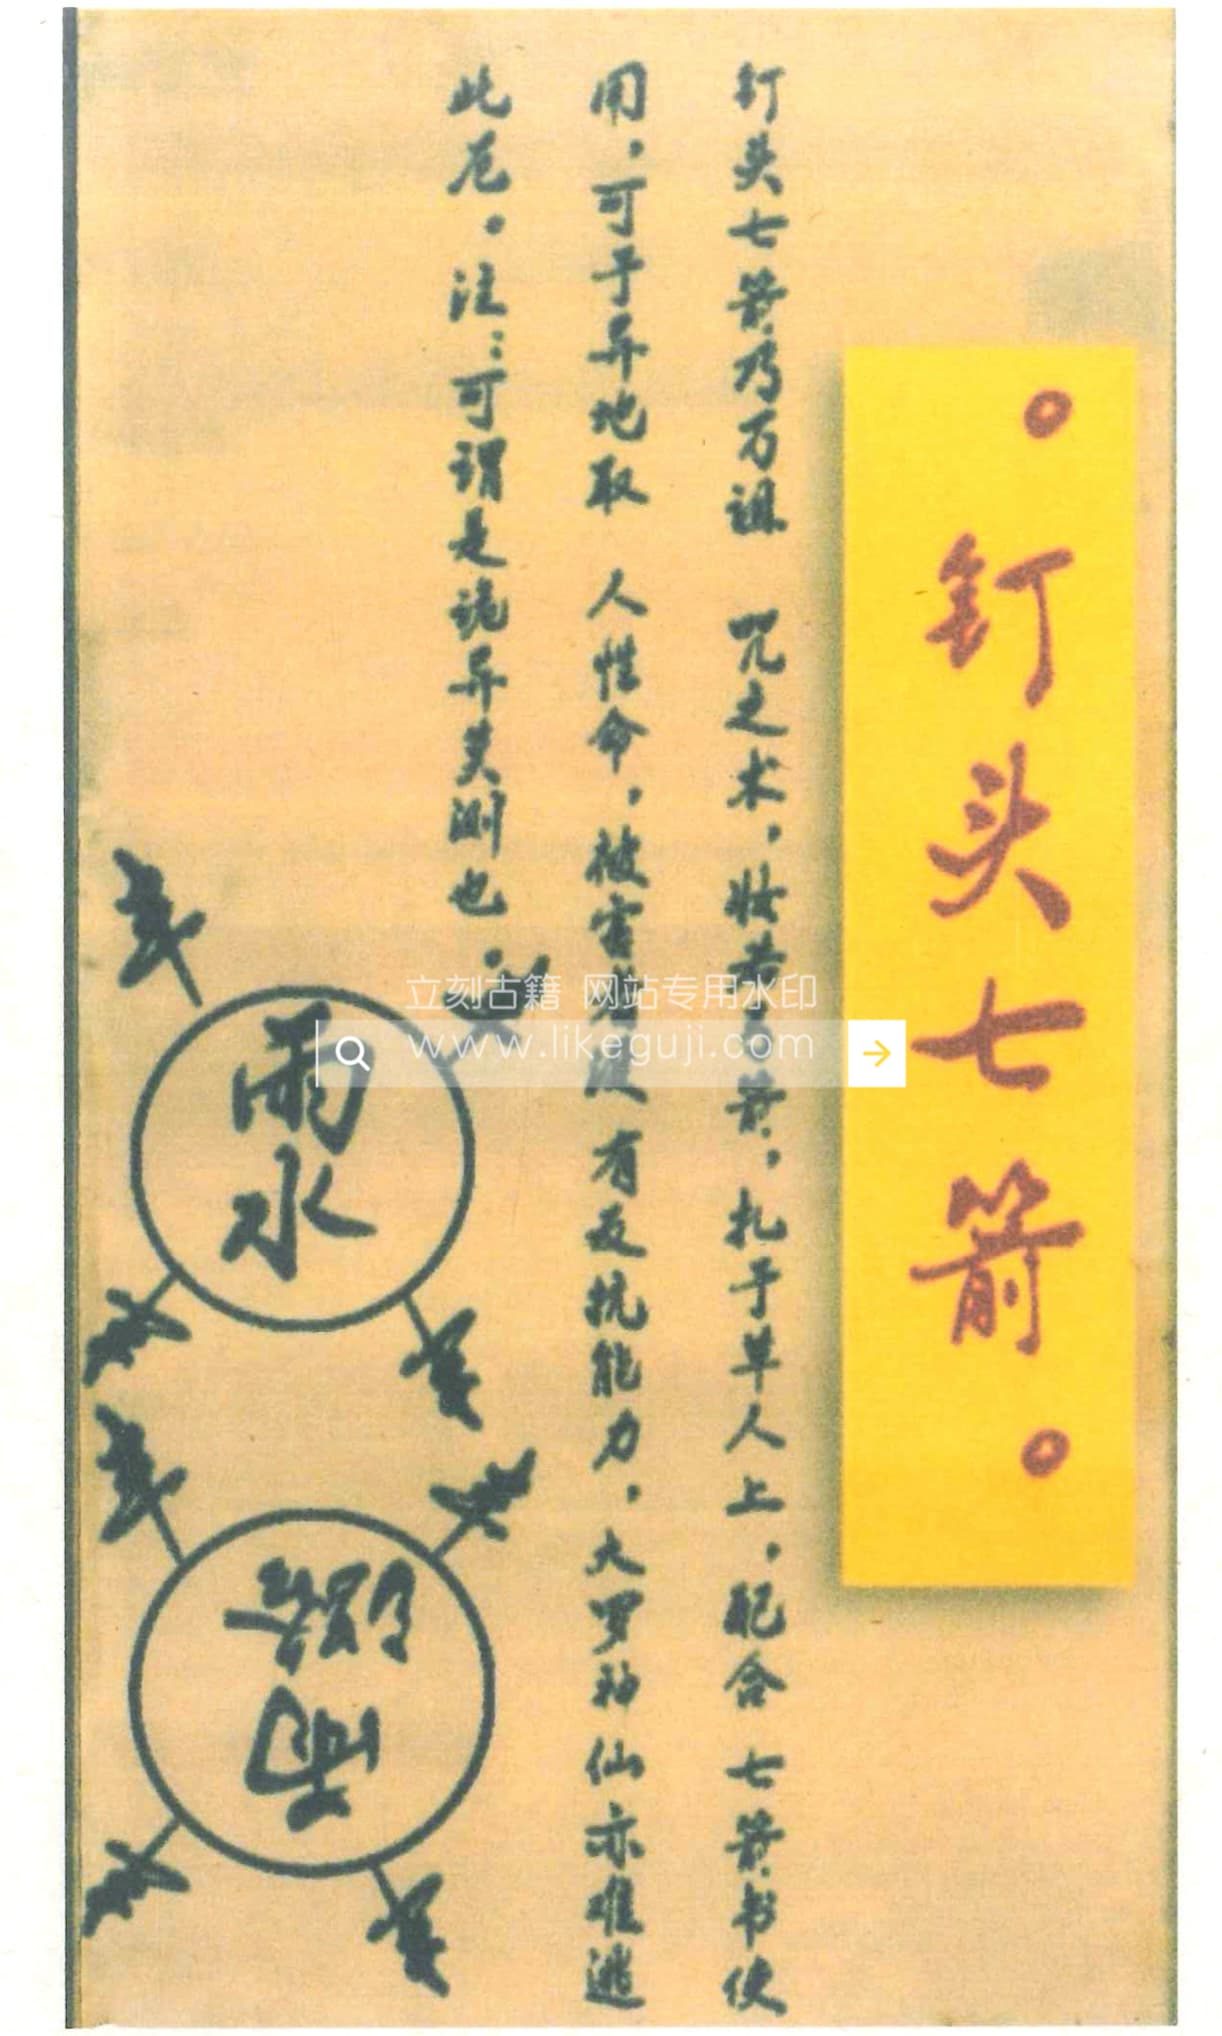 。钉头七箭。
钉头七箭乃万诅 咒之术，妆 箭，扎于草人上，配合 七箭书使
用，可于异地取 人性命，被害者没有反抗能力，大罗神仙亦难逃
此厄。注：可谓是诡异莫测也。
雨水
立刻古籍 网站专用水印
www.likeguji.com